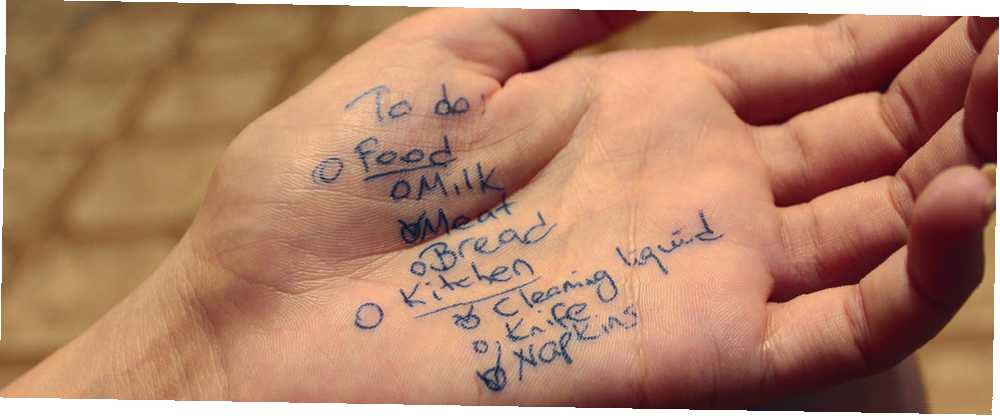 To do:
Food
Milk
Meat
Bread
Kitchen
Cleaning liquid
Knife
Napkins